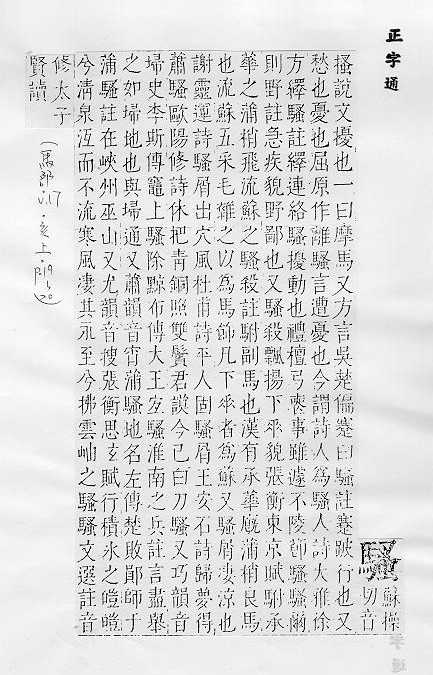 正字通
騷
蘇操
切音
搔說文擾也一曰摩馬又方言吳楚偏蹇曰騷註蹇跛行也又
愁也憂也屈原作離騷言遭憂也今謂詩人為騷人詩大雅徐
方繹騷註繹連絡騷擾動也禮檀弓喪事雖遽不陵節騷騷爾
則野註急疾貌野鄙也又騷殺飄揚下垂貌張衡東京賦駙承
華之蒲梢飛流蘇之騷殺註駙副馬也漢有承華廐蒲梢良馬
也流蘇五采毛雜之以為馬飾凡下垂者為蘇又騷屑淒涼也
謝靈運詩騷屑出穴風杜甫詩平人固騷屑王安石詩歸夢得
蕭騷歐陽修詩休把青銅照雙鬢君謨今已白刀騷又巧韻音
埽史李斯傳竈上騷除黥布傳大王宜騷淮南之兵註言盡舉
之如埽地也與埽通又蕭韻音宵蒲騷地名左傳楚敗鄖師于
蒲騷註在峽州巫山又尤韻音搜張衡思玄賦行積冰之皚皚
兮清泉沍而不流寒風淒其永至兮拂雲岫之騷騷文選註音
修太子
賢讀
(馬部
17
亥上
P19
20)
字通